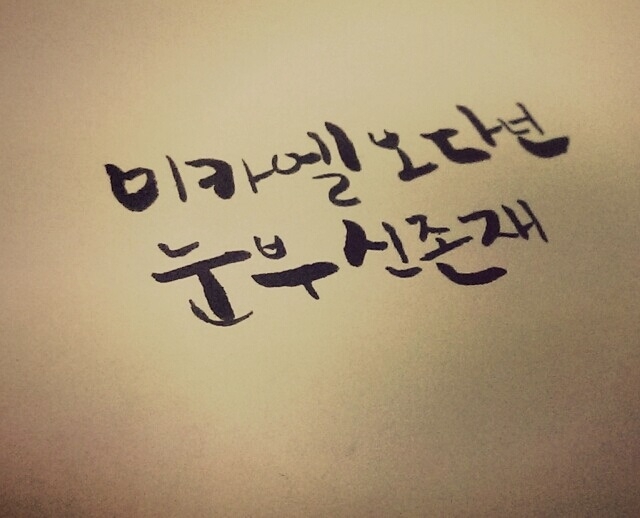 미카엘보다넌
눈부신존재